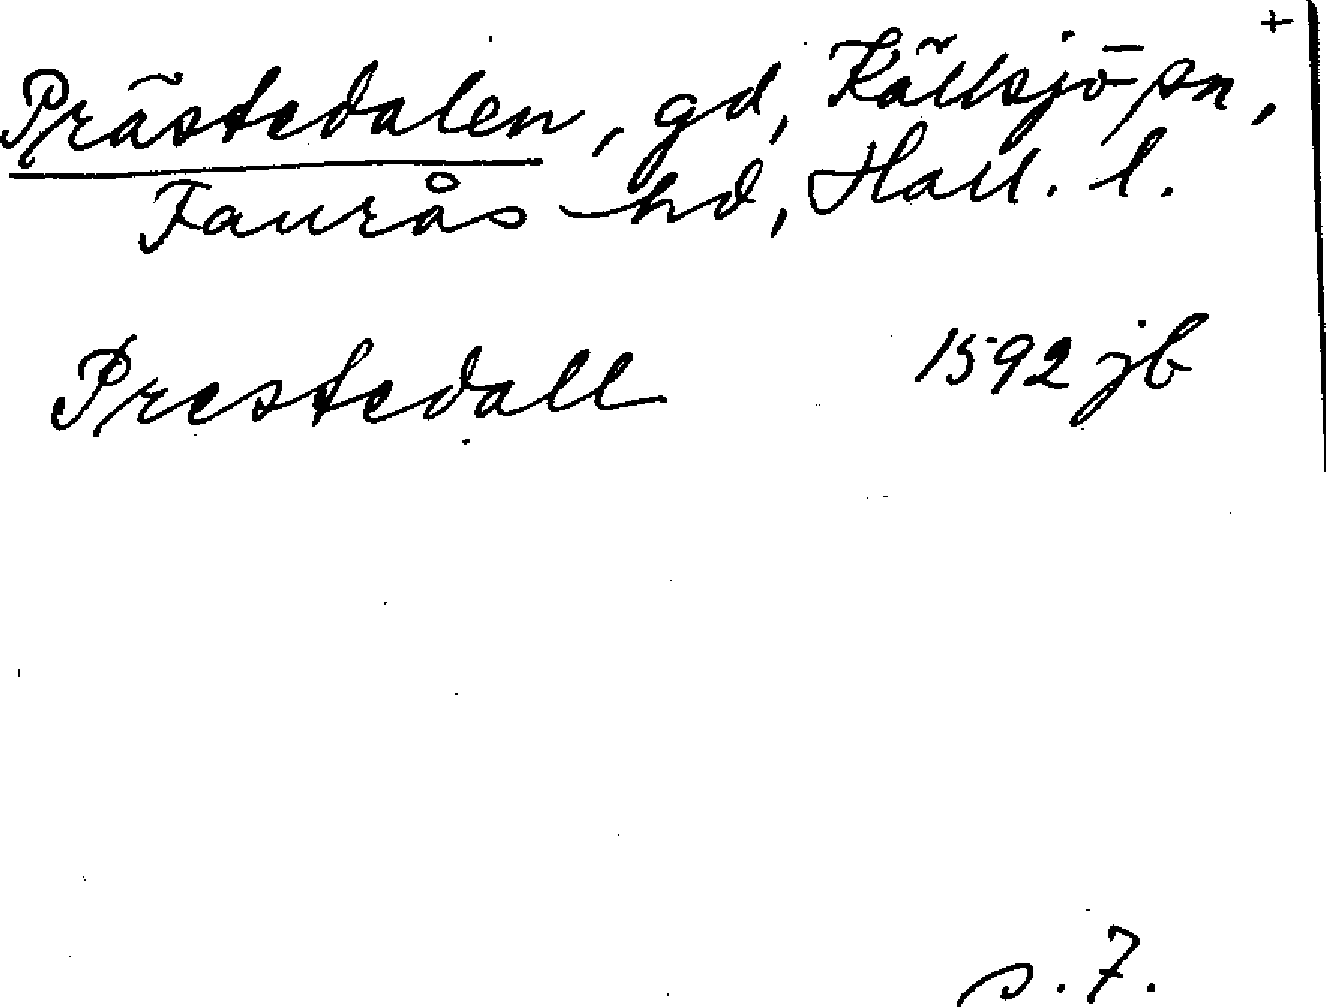 +
Prästedalen, gd, Källsjö sn,
Faurås hd, Hall. l.
Prestedall 1592 jb
s. 7.